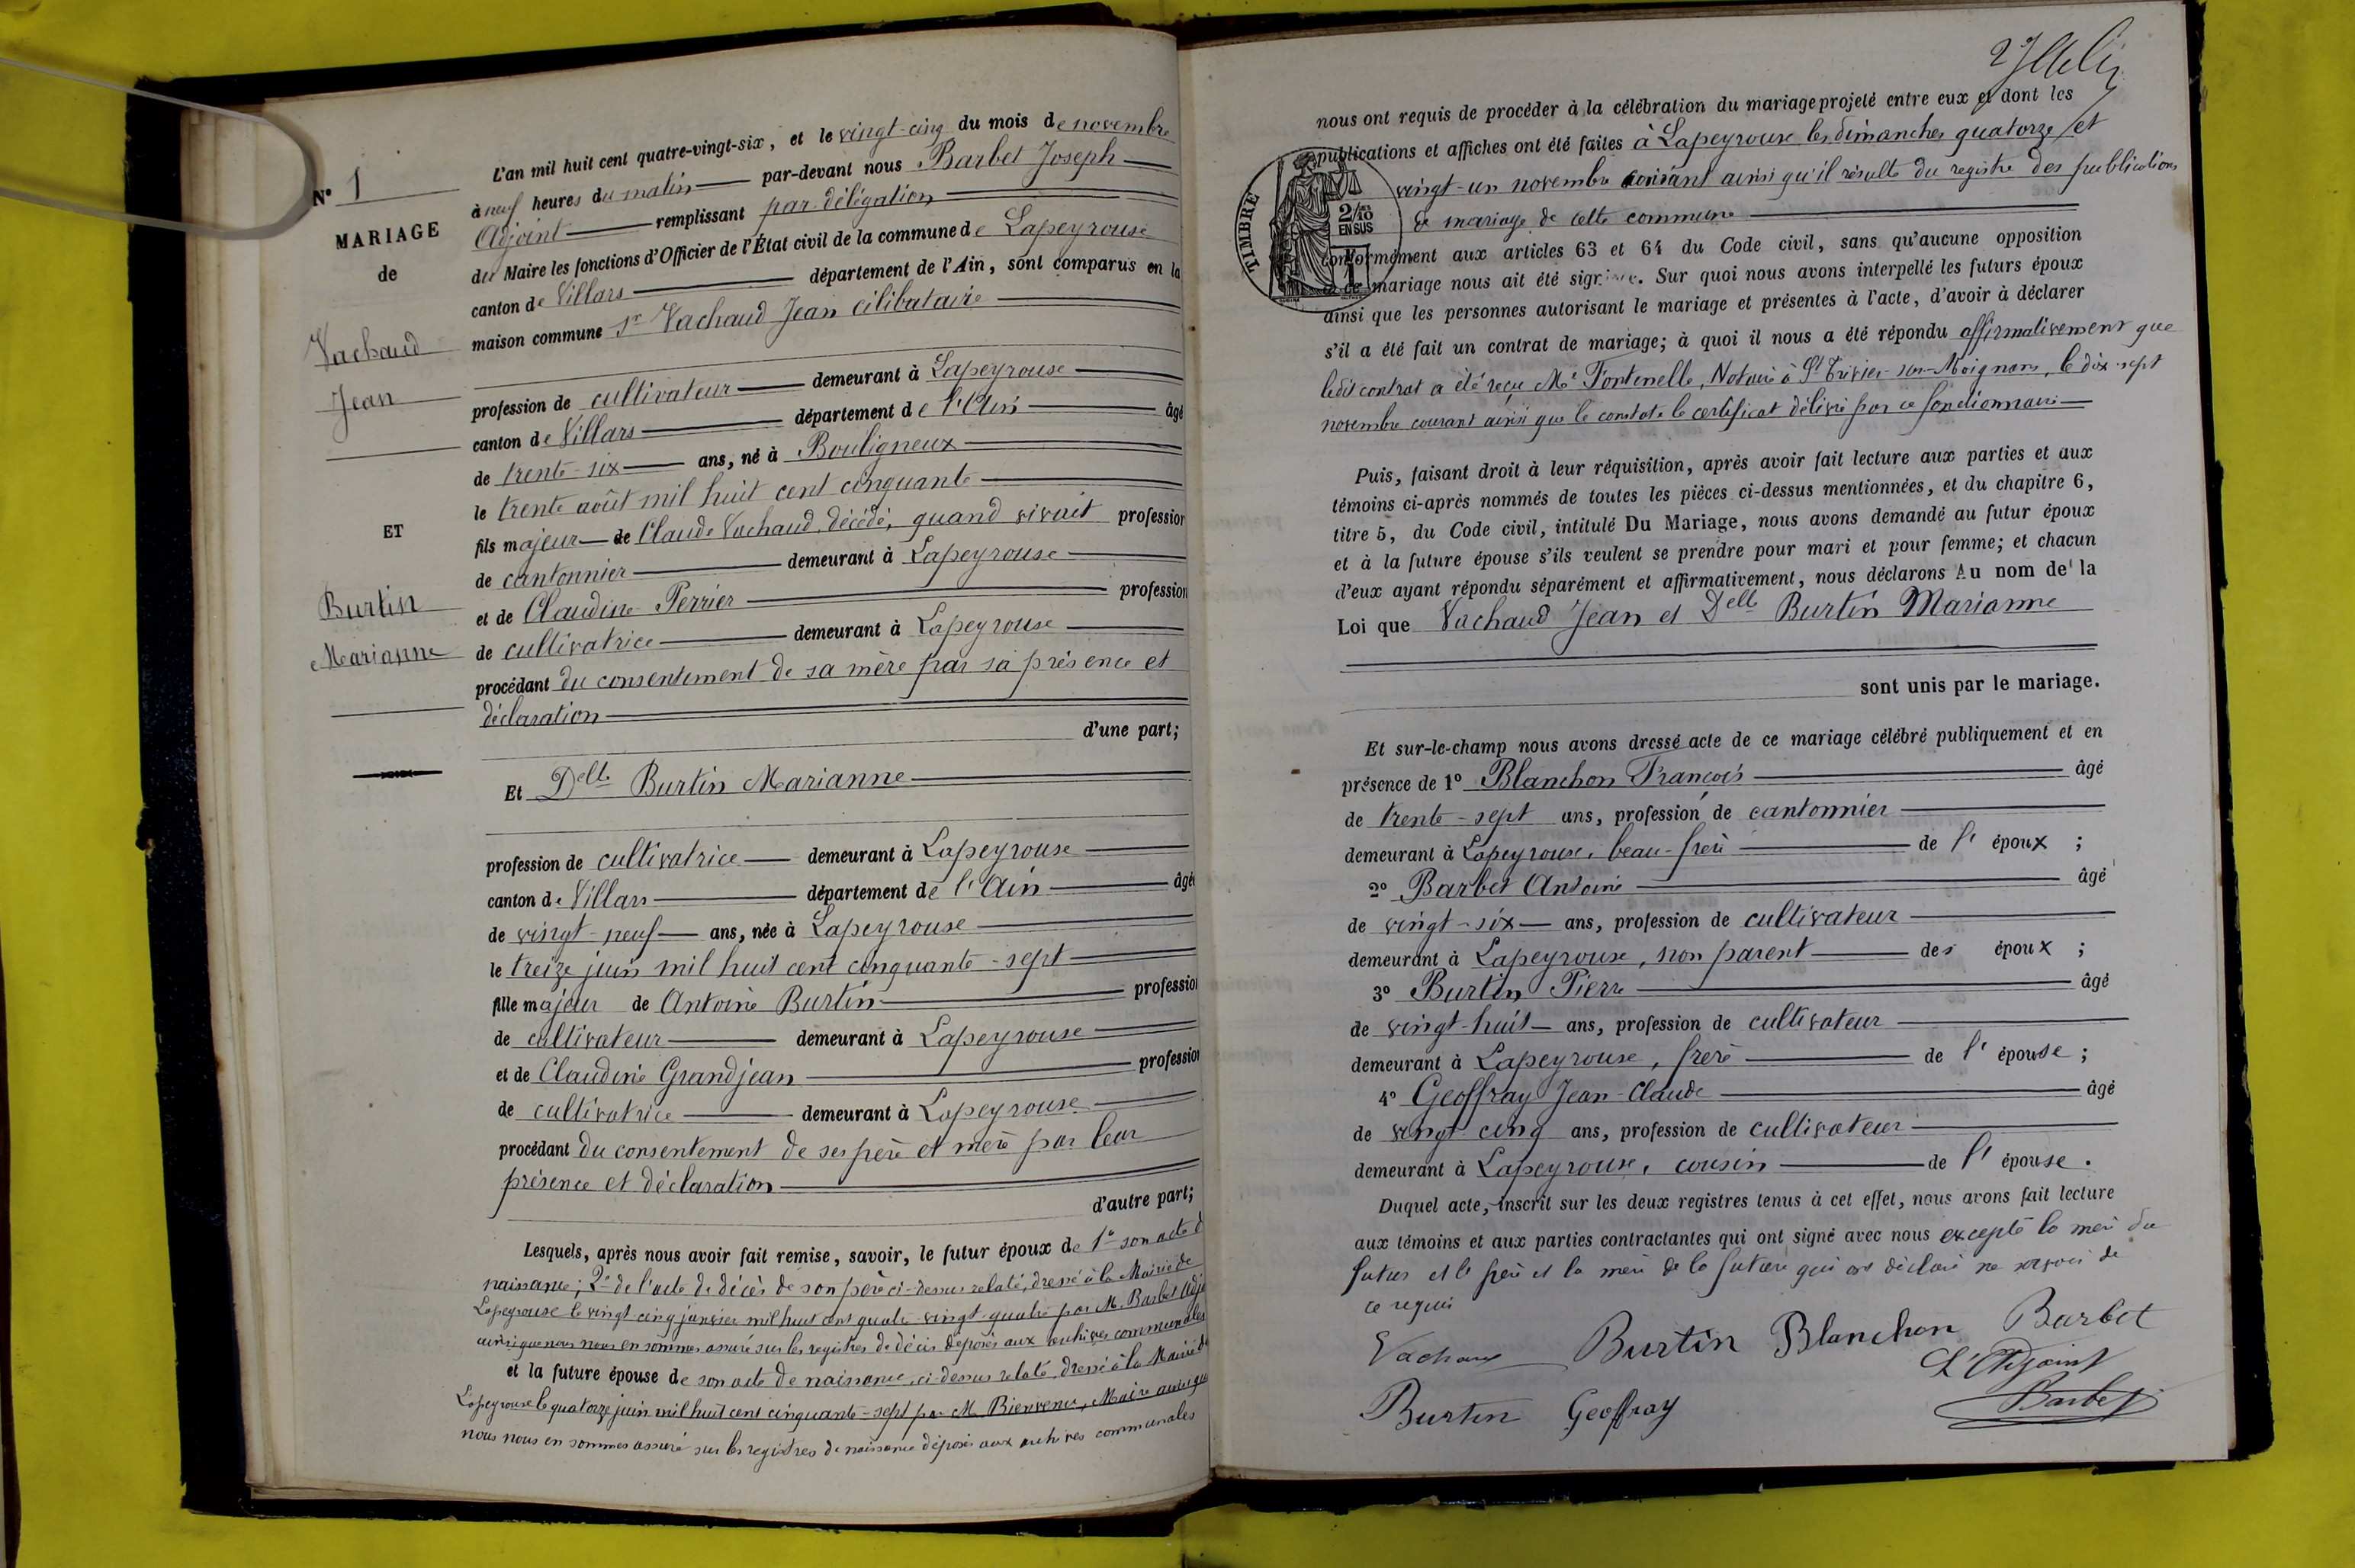 N° 1
MARIAGE
de
Vachaud
Jean
ET
Burtin
Marianne
L'an mil huit cent quatre-vingt-six, et le vingt-cinq du mois de novembre
à neuf heures du matin par-devant nous Barbet Joseph
Adjoint remplissant par délégation
du Maire les fonctions d'Officier de l'État civil de la commune de Lapeyrouse
canton de Villars département de l'Ain, sont comparus en la
maison commune Sr Vachaud Jean célibataire
profession de cultivateur demeurant à Lapeyrouse
canton de Villars département de l'Ain âgé
de trente-six ans, né à Bouligneux
le trente août mil huit cent cinquante
fils majeur de Claude Vachaud, décédé, quand vivait profession
de cantonnier demeurant à Lapeyrouse
et de Claudine Perrier profession
de cultivatrice demeurant à Lapeyrouse
procédant du consentement de sa mère par sa présence et
déclaration
d'une part;
Et Delle Burtin Marianne
profession de cultivatrice demeurant à Lapeyrouse
canton de Villars département de l'Ain âgé
de vingt-neuf ans, née à Lapeyrouse
le treize juin mil huit cent cinquante-sept
fille majeur de Antoine Burtin profession
de cultivateur demeurant à Lapeyrouse
et de Claudine Grandjean profession
de cultivatrice demeurant à Lapeyrouse
procédant du consentement de ses père et mère par leur
présence et déclaration
d'autre part;
Lesquels, après nous avoir fait remise, savoir, le futur époux de 1° son acte d
naissance; 2° de l'acte de décès de son père ci-dessus relaté, dressé à la Mairie de
Lapeyrouse le vingt-cinq janvier mil huit cent quatre-vingt-quatre par M. Barbet Adj
ainsi que nous nous en sommes assuré sur les registres de décès déposés aux archives communales
et la future épouse de son acte de naissance, ci-dessus relaté, dressé à la Mairie de
Lapeyrouse le quatorze juin mil huit cent cinquante-sept par M. Bienvenu, Maire ainsi que
nous nous en sommes assuré sur les registres de naissance déposés aux archives communales
nous ont requis de procéder à la célébration du mariage projeté entre eux et dont les
publications et affiches ont été faites à Lapeyrouse les dimanches quatorze et
vingt-un novembre courant ainsi qu'il résulte du registre des publications
de mariage de cette commune
TIMBRE
2/10 EN SUS
conformément aux articles 63 et 64 du Code civil, sans qu'aucune opposition
à ce mariage nous ait été signifiée. Sur quoi nous avons interpellé les futurs époux
ainsi que les personnes autorisant le mariage et présentes à l'acte, d'avoir à déclarer
s'il a été fait un contrat de mariage; à quoi il nous a été répondu affirmativement que
ledit contrat a été reçu Me Fontenelle, Notaire à St Trivier-sur-Moignans, le dix-sept
novembre courant ainsi que le constate le certificat délivré par ce fonctionnaire
Puis, faisant droit à leur réquisition, après avoir fait lecture aux parties et aux
témoins ci-après nommés de toutes les pièces ci-dessus mentionnées, et du chapitre 6,
titre 5, du Code civil, intitulé Du Mariage, nous avons demandé au futur époux
et à la future épouse s'ils veulent se prendre pour mari et pour femme; et chacun
d'eux ayant répondu séparément et affirmativement, nous déclarons Au nom de la
Loi que Vachaud Jean et Delle Burtin Marianne
sont unis par le mariage.
Et sur-le-champ nous avons dressé acte de ce mariage célébré publiquement et en
présence de 1° Blanchon François âgé
de trente-sept ans, profession de cantonnier
demeurant à Lapeyrouse, beau-frère de l' époux ;
2° Barbet Antoine âgé
de vingt-six ans, profession de cultivateur
demeurant à Lapeyrouse, non parent des époux ;
3° Burtin Pierre âgé
de vingt-huit ans, profession de cultivateur
demeurant à Lapeyrouse, frère de l' épouse ;
4° Geoffray Jean-Claude âgé
de vingt-cinq ans, profession de cultivateur
demeurant à Lapeyrouse, cousin de l' épouse.
Duquel acte, inscrit sur les deux registres tenus à cet effet, nous avons fait lecture
aux témoins et aux parties contractantes qui ont signé avec nous excepté la mère du
futur et le père et la mère de la future qui ont déclaré ne savoir de
ce requis
Vachaud Burtin Blanchon Barbet
L'Adjoint
Burtin Geoffray Barbet